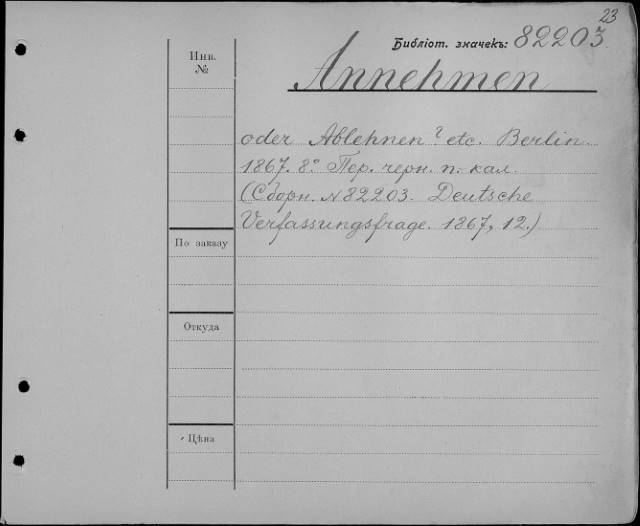 23
Библіот. значекъ: 82203.
Инв.
№
Annehmen
oder Ablehnen? etc. Berlin.
1867. 8° Пер. черн. п. кал.
(Сборн. № 82203. Deutsche
Verfassungsfrage. 1867, 12.)
По заказу
Откуда
Цѣна